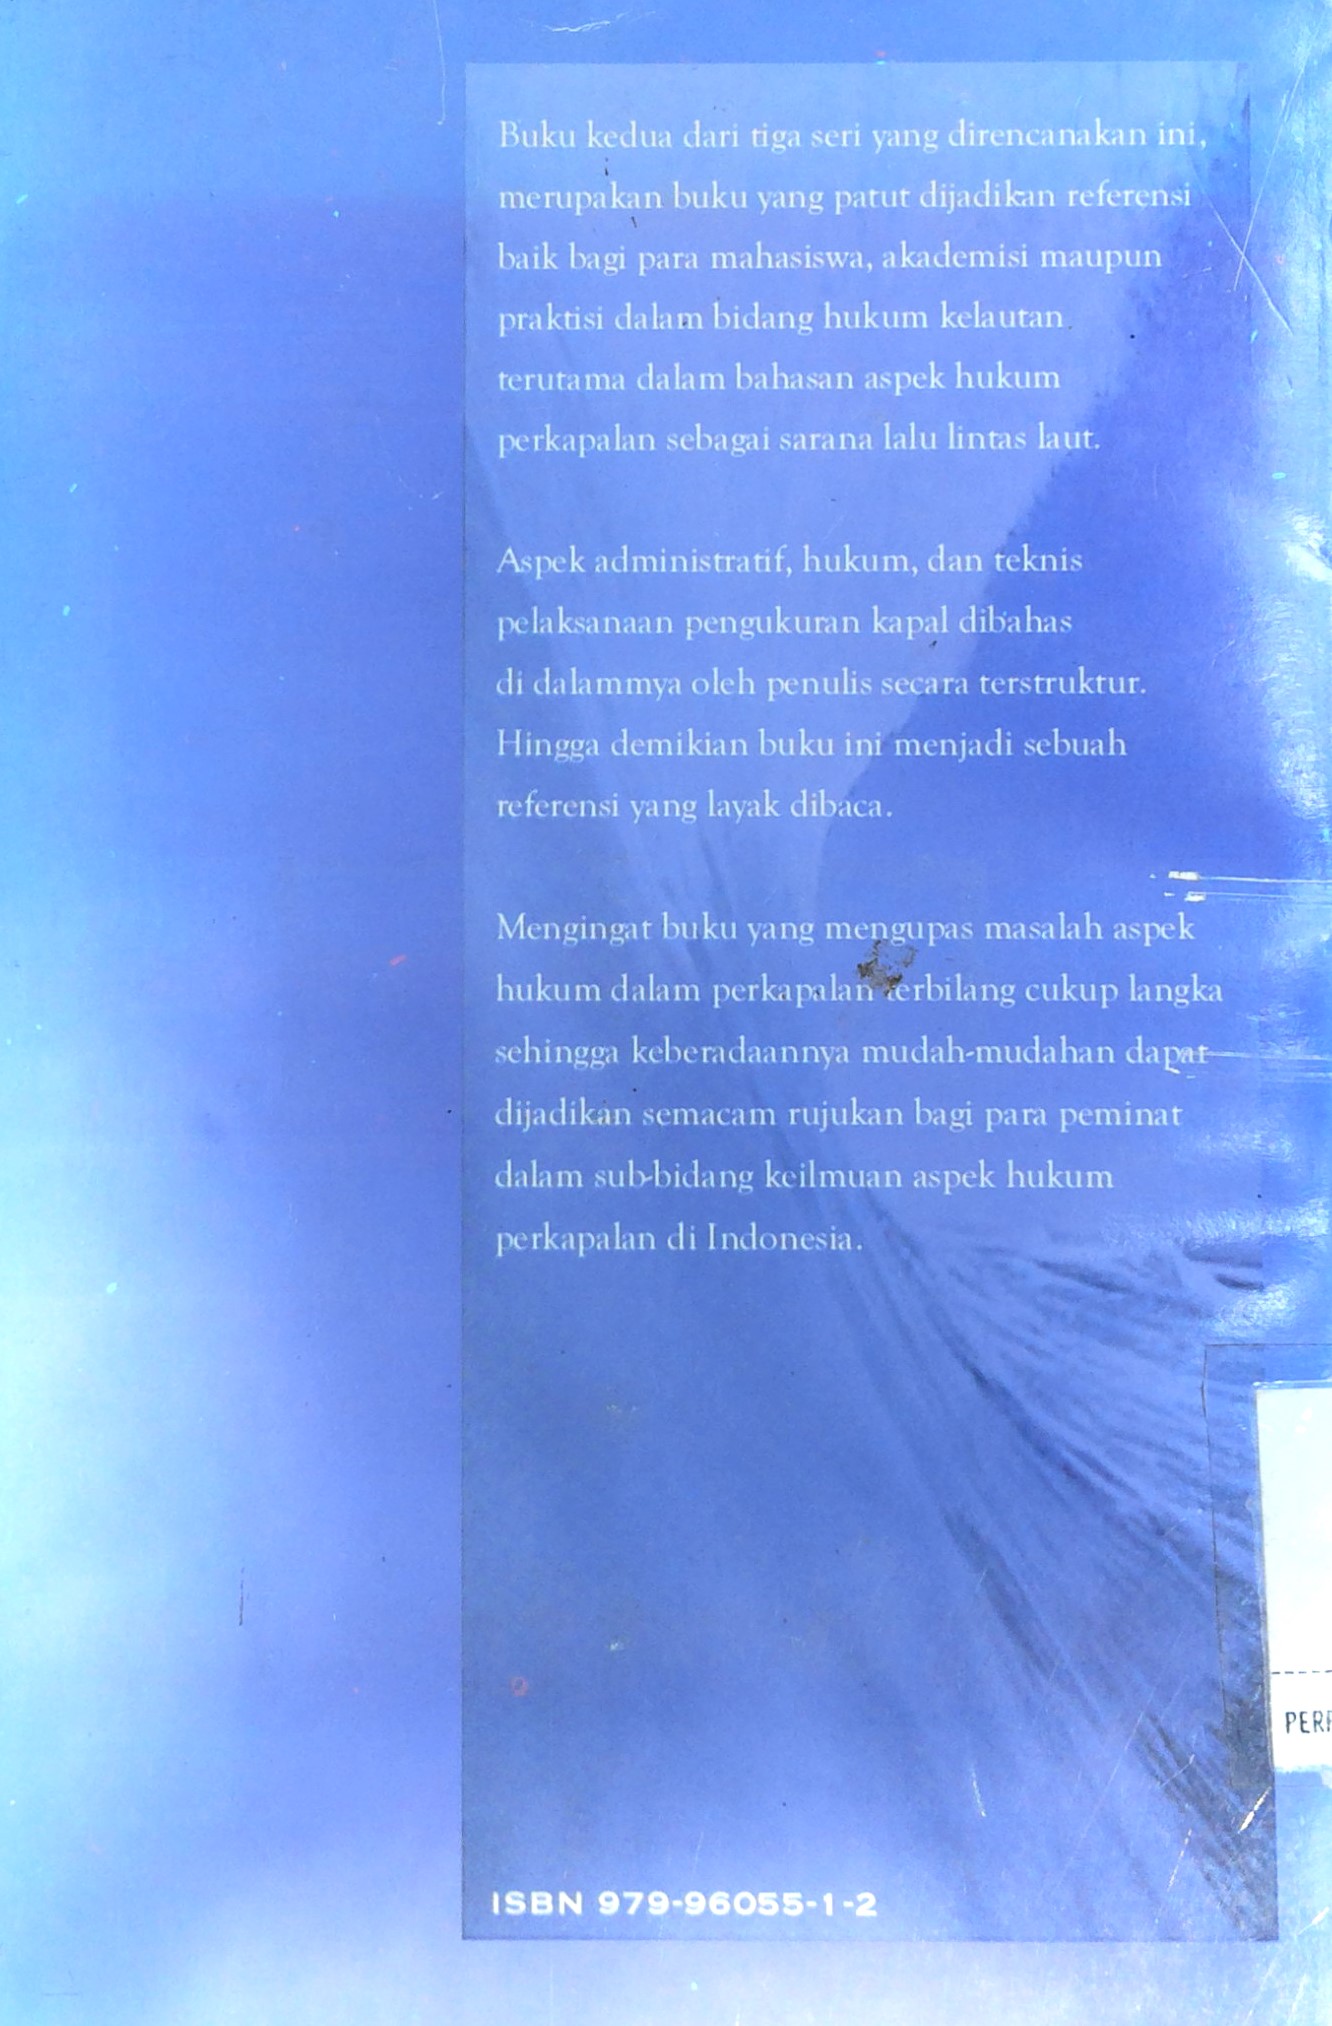 Buku kedua dari tiga seri yang direncanakan ini,
merupakan buku yang patut dijadikan referensi
baik bagi para mahasiswa, akademisi maupun
praktisi dalam bidang hukum kelautan
terutama dalam bahasan aspek hukum
perkapalan sebagai sarana lalu lintas laut.
Aspek administratif, hukum, dan teknis
pelaksanaan pengukuran kapal dibahas
di dalammya oleh penulis secara terstruktur.
Hingga demikian buku ini menjadi sebuah
referensi yang layak dibaca.
Mengingat buku yang mengupas masalah aspek
hukum dalam perkapalan terbilang cukup langka
sehingga keberadaannya mudah-mudahan dapat
dijadikan semacam rujukan bagi para peminat
dalam sub-bidang keilmuan aspek hukum
perkapalan di Indonesia.
ISBN 979-96055-1-2